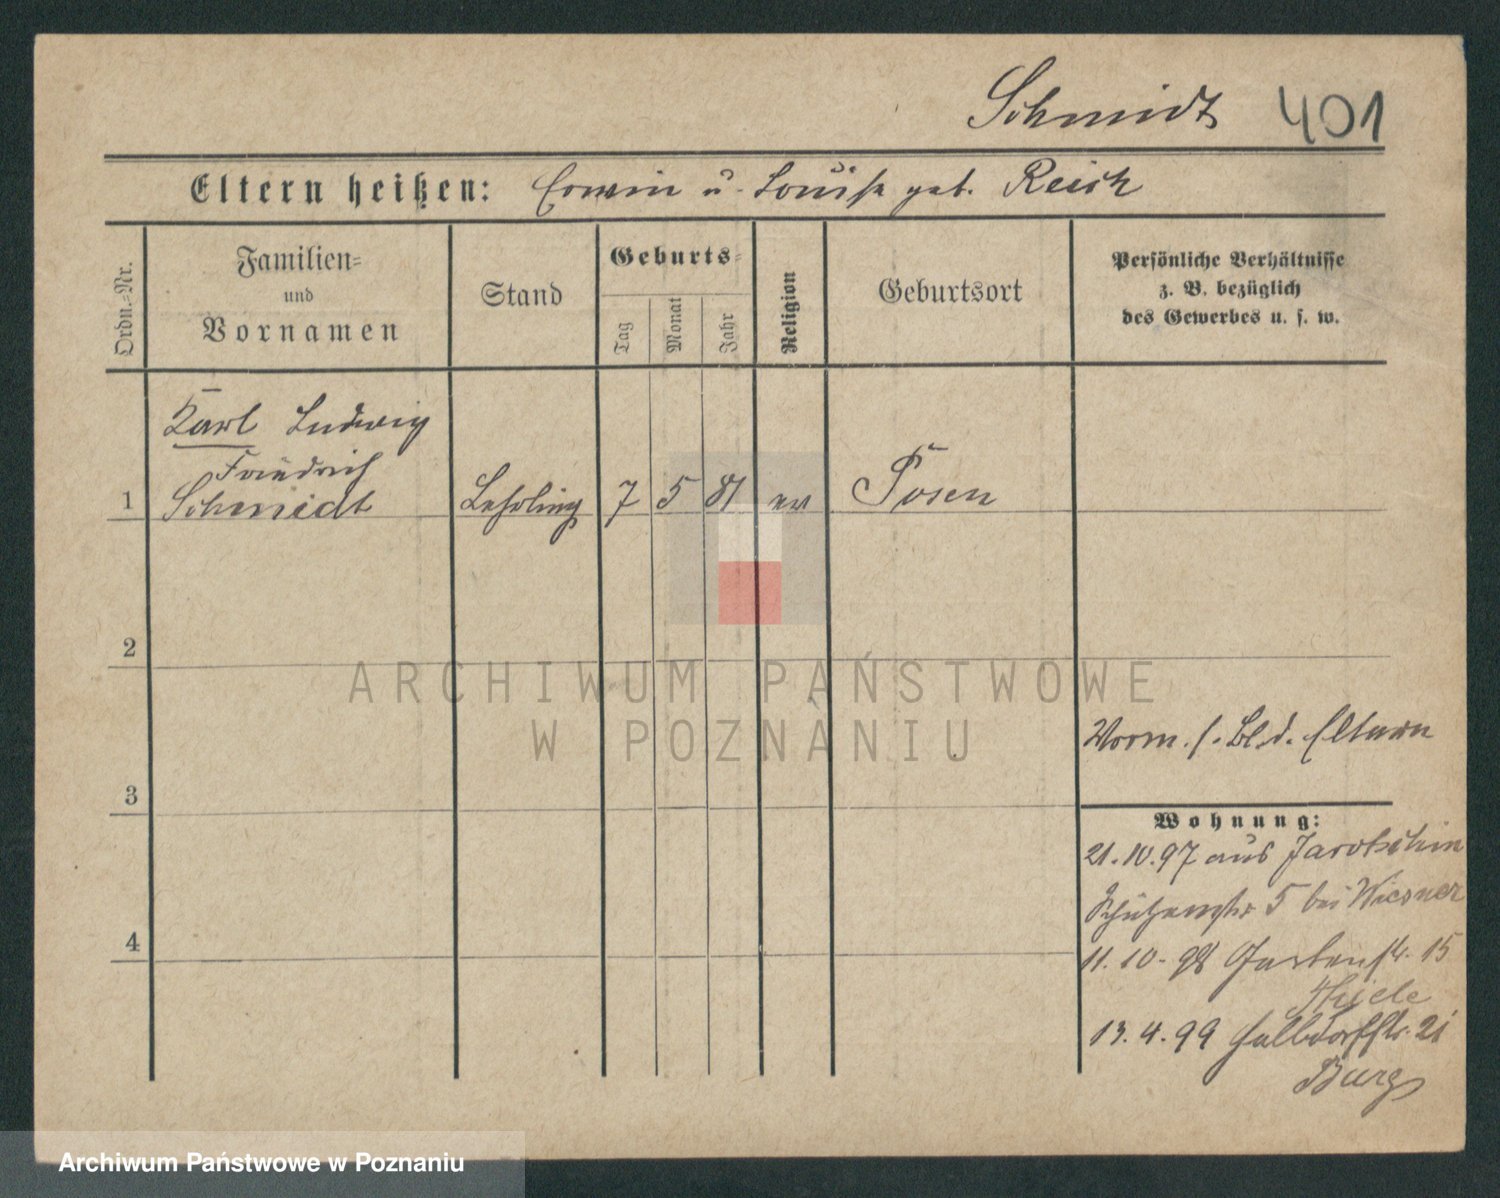 Schmidt 401
Eltern heißen: Erwin u. Louise geb. Reich
Ordn.=Nr.
Familien=
und
Vornamen
Stand
Geburts=
Tag
Monat
Jahr
Religion
Geburtsort
Persönliche Verhältnisse
z. B. bezüglich
des Gewerbes u. s. w.
Karl Ludwig
Friedrich
1 Schmidt Lehrling 7 5 81 ev Posen
2
ARCHIWUM PAŃSTWOWE
W POZNANIU
Vorm. s. Bl. d. Eltern
3
Wohnung:
21.10.97 aus Jarotschin
Schützenstr 5 bei Wiesner
4
11.10.98 Gartenstr. 15
Thiele
13.4.99 Halbdorfstr. 21
Burg
Archiwum Państwowe w Poznaniu